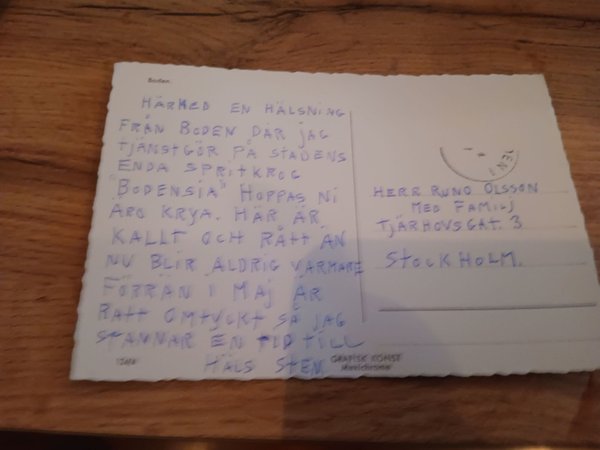 Boden.
HÄRMED EN HÄLSNING
FRÅN BODEN DÄR JAG
TJÄNSTGÖR PÅ STADENS
ENDA SPRITKROG
"BODENSIA" HOPPAS NI
ÄRO KRYA. HÄR ÄR
KALLT OCH RÅTT ÄN
NU BLIR ALDRIG VARMARE
FÖRRÄN I MAJ ÄR
RÄTT OMTYCKT SÅ JAG
STANNAR EN TID TILL
HÄLS STEN
HERR RUNO OLSSON
MED FAMILJ
TJÄRHOVSGAT. 3
STOCKHOLM.
GRAFISK KONST